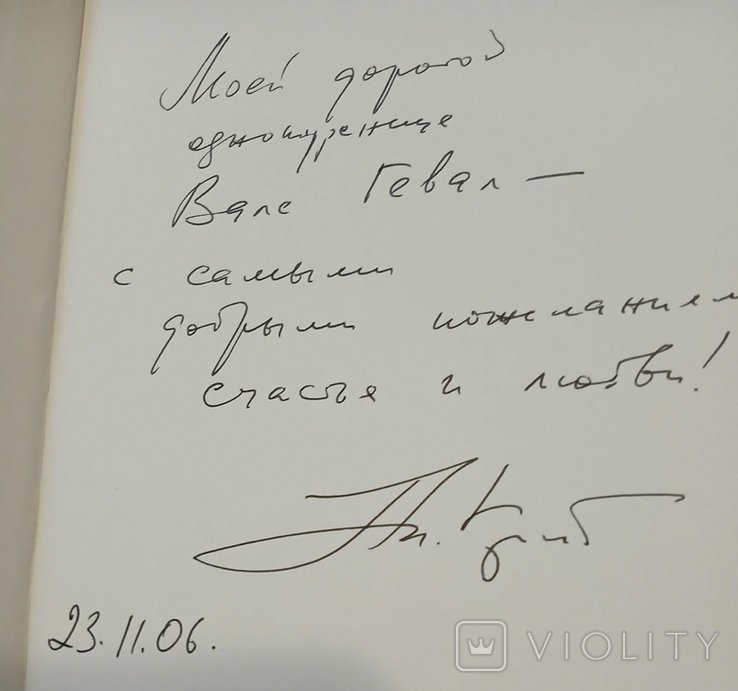 Моей дорогой
однокурснице
Вале Гевал –
с самыми
добрыми пожеланием
счастья и любви!
23.11.06.
VIOLITY